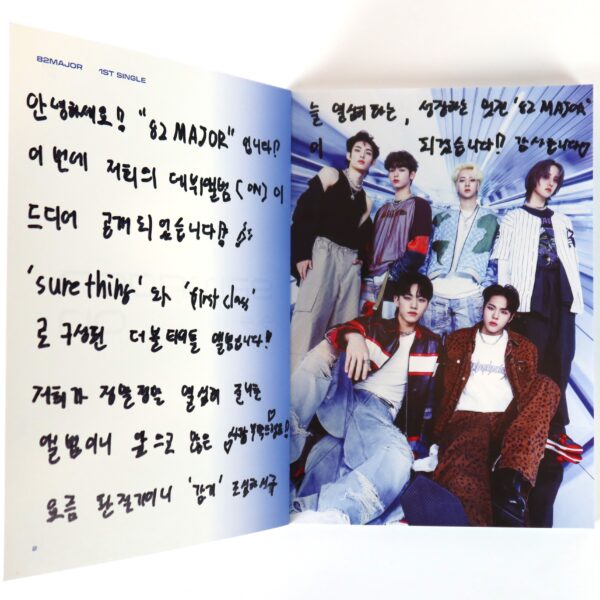 82MAJOR 1ST SINGLE
안녕하세요! "82 MAJOR" 입니다!
이번에 저희의 데뷔앨범 (ON) 이
드디어 공개되었습니다!
'sure thing' 와 'first class'
로 구성된 더블타이틀 앨범입니다!
저희가 정말정말 열심히 준비한
앨범이니 앞으로 많은 사랑 부탁드려요!
요즘 환절기이니 '감기' 조심하시구
늘 열심히 하는, 성장하는 멋진 "82 MAJOR"
이 되겠습니다! 감사합니다